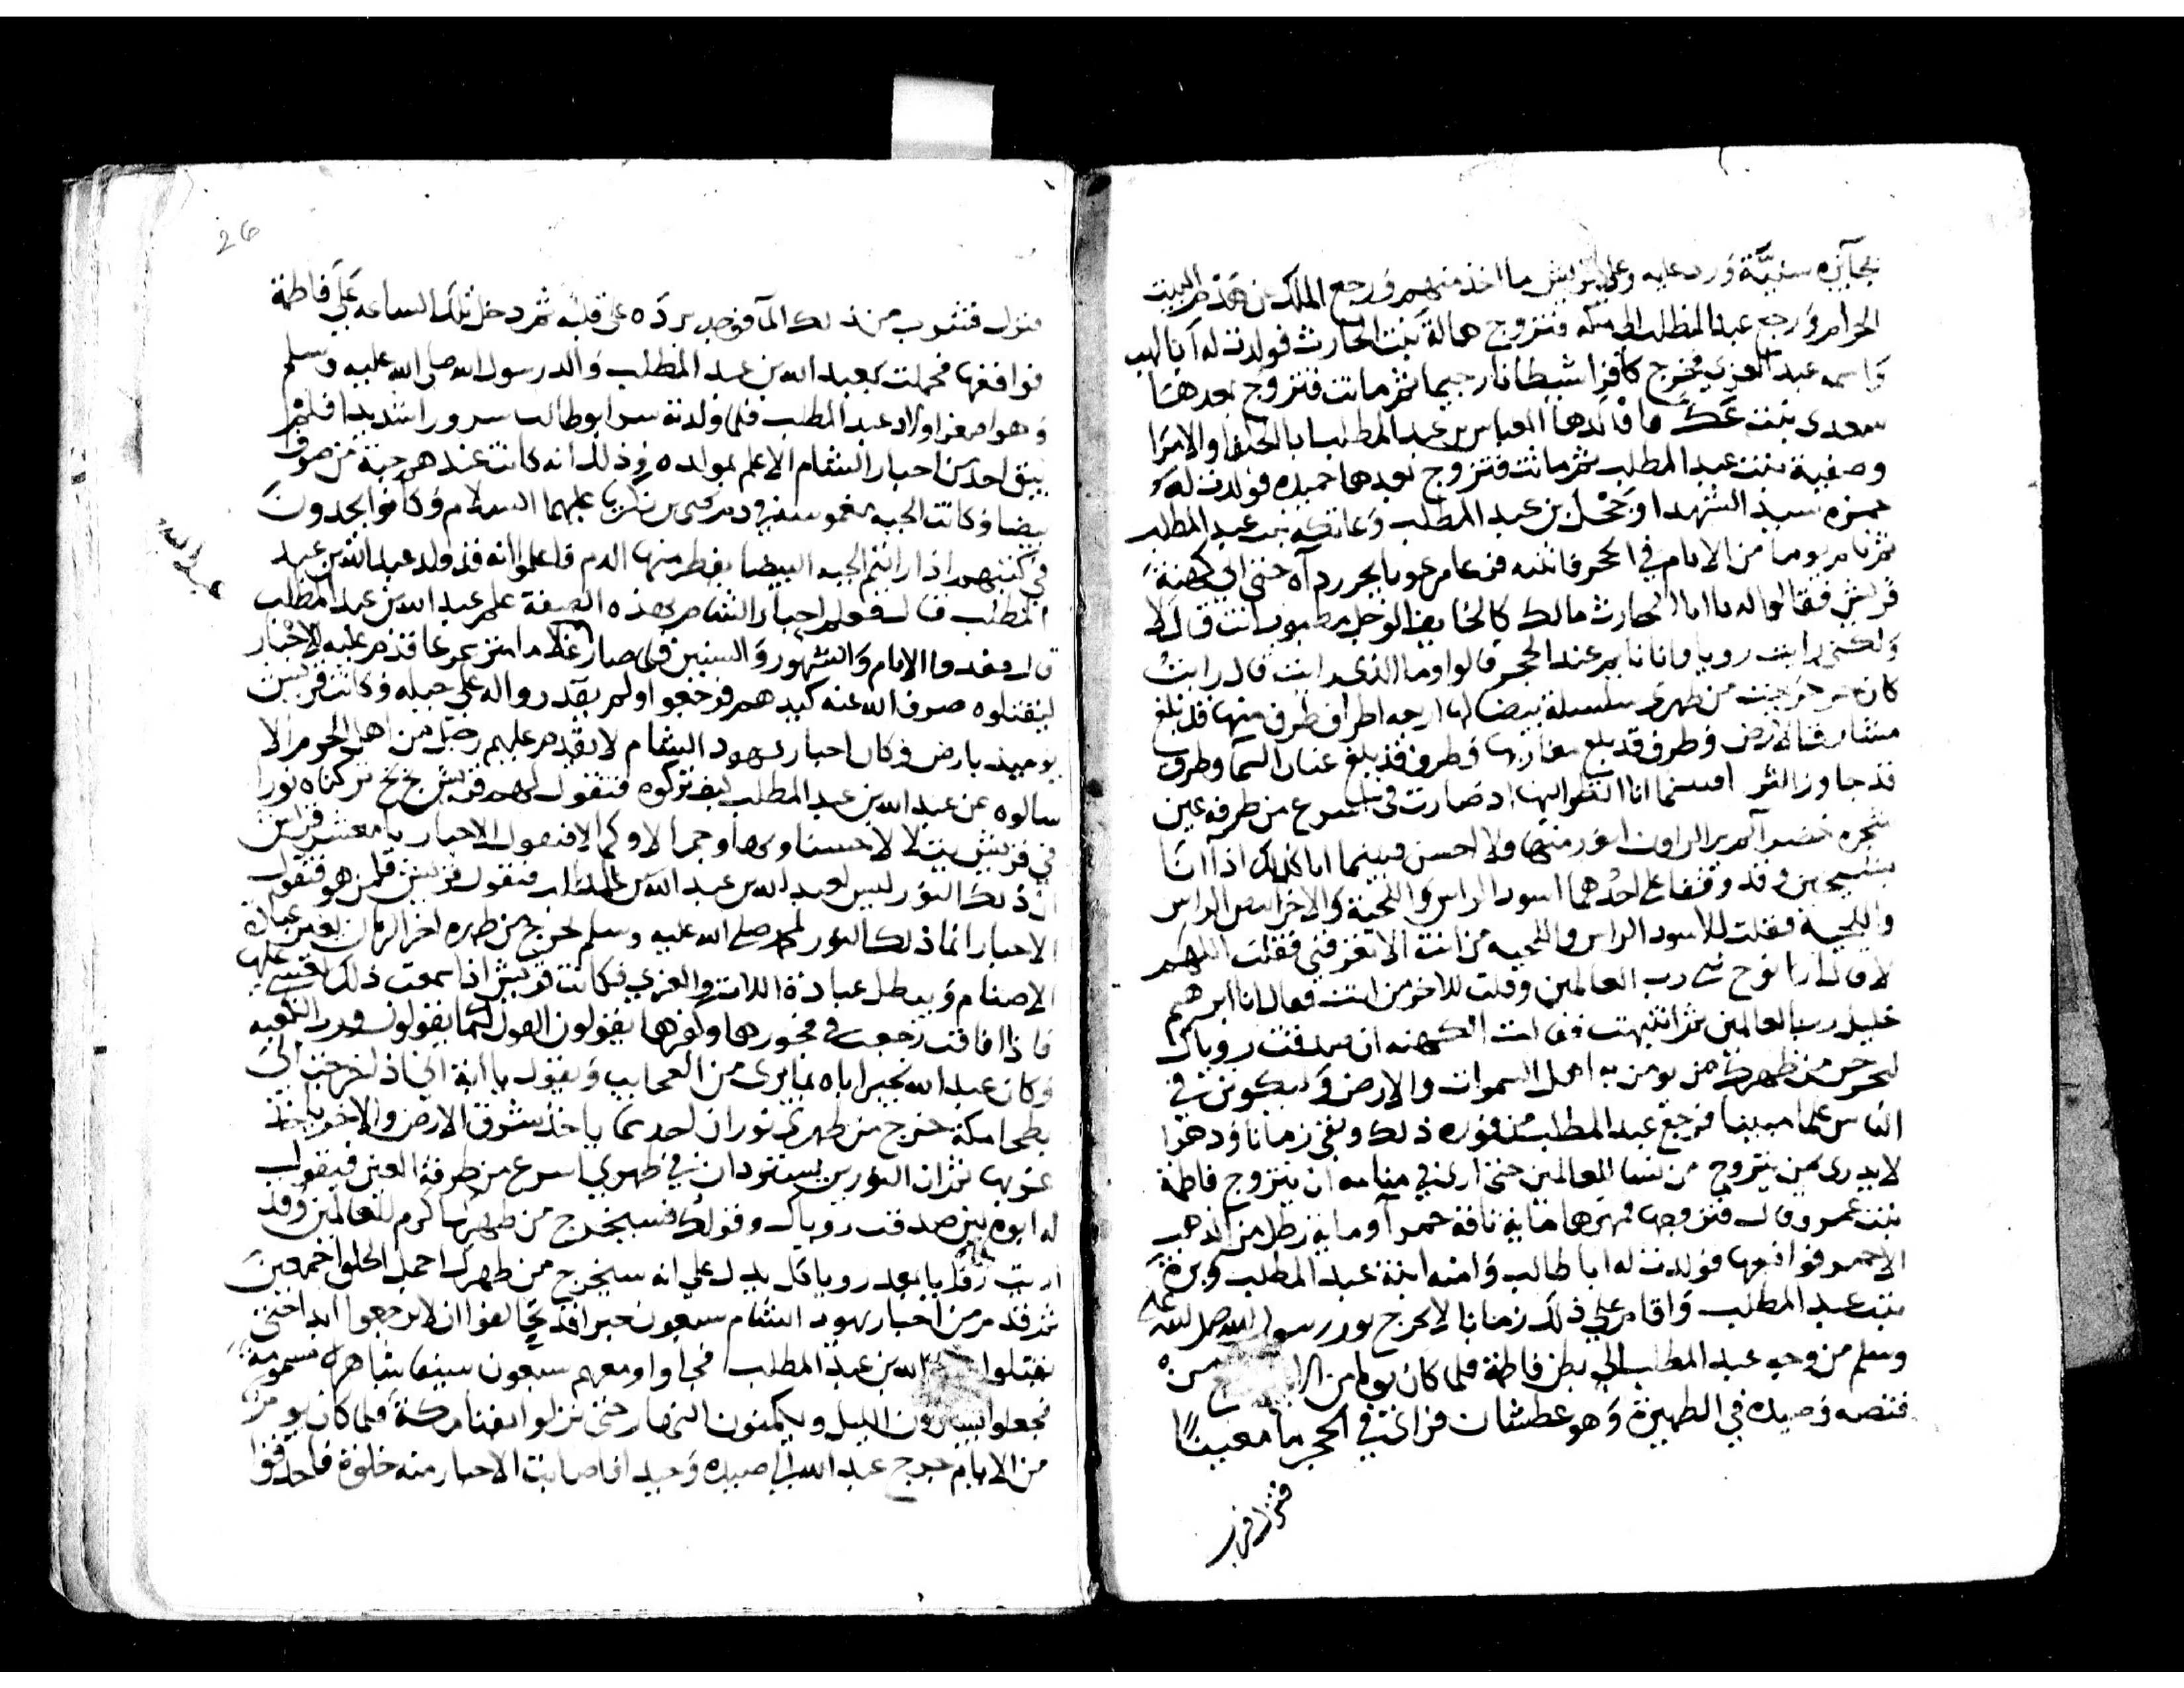 بجايزه سنيَّة ورد عليه وعلي قريش ما اخذ منهم ورجع الملك عن هدم البيت
الحرام ورجع عبد المطلب الي مكه فتزوج هالة بنت الحارث فولدت له ابا لهب
واسمه عبد العزي فخرج كافرا شيطانا رجيما ثم ماتت فتزوج بعدها
سعدي بنت فاولدها العباس بن عبد المطلب ابا الخلفا والامرا
وصفية بنت عبد المطلب ثم ماتت فتزوج بعدها حميده فولدت له
حمزه سيد الشهدا وجحل بن عبد المطلب وعاتكه بنت عبد المطلب
ثم نام يوما من الايام في الحجر فانتبه فزعا مرعوبا يجر رداه حتي اتي كهنة
قريش فقالوا له يا ابا الحارث مالك كالخايف الوجل مطلوب انت قال لا
ولكني رايت رويا وانا نايم عند الحجر قالوا وما الذي رايت قال رايت
كان خرجت من ظهري سلسلة بيضا لها اربعه اطراف طرف منها قد بلغ
مشارق الارض وطرف قد بلغ مغاربها وطرف قد بلغ عنان السما وطرف
قد جاوز الثري فبينما انا انظر اليها اذ صارت في اسرع من طرفه عين
شجره خضرا لم ير الراون انور منها ولا احسن فبينما انا كذلك اذا انا
بشيخين قد وقفا علي احدهما اسود الراس واللحية والاخر ابيض الراس
واللحية فقلت للاسود الراس واللحيه من انت الا تعرفني فقلت اللهم
لا قال انا نوح نبي رب العالمين وقلت للاخر من انت فقال انا ابرهيم
خليل رب العالمين ثم انتبهت فقالت الكهنه ان صدقت روياك
ليخرجن من ظهرك من يومن به اهل السموات والارض وليكونن في
الناس علما مبينا فرجع عبد المطلب من فوره ذلك وبقي زمانا ودهرا
لا يدري بمن يتزوج من نسا العالمين حتي اري في منامه ان يتزوج فاطمة
بنت عمرو قال فتزوجها ومهرها ماية ناقة حمرا وماية رطل من الذهب
الاحمر فواقعها فولدت له ابا طالب وامنه ابنة عبد المطلب وبرة
بنت عبد المطلب واقام علي ذلك زمانا لا يخرج نور رسول الله صلي الله عليه
وسلم من وجه عبد المطلب الي بطن فاطمة فلما كان يوما من الايام رجع من
قنصه وصيده في الظهيرة وهو عطشان فراي في الحجر ما معينا
فنزل فشرب
26
فنزل فشرب من ذلك الما فوجد برده علي قلبه ثم دخل تلك الساعه علي فاطمة
فواقعها فحملت بعبد الله بن عبد المطلب والد رسول الله صلي الله عليه وسلم
وهو اصغر اولاد عبد المطلب فلما ولدته سر ابو طالب سرورا شديدا فلم
يبق احد من احبار الشام الا علم بمولده وذلك انه كانت عندهم جبة من صوف
بيضا وكانت الجبه مغموسة في دم يحيي بن زكريا عليهما السلام وكانوا يجدون
في كتبهم اذا رايتم الجبه البيضا يقطر منها الدم فاعلموا انه قد ولد عبد الله بن عبد
عبد الله
المطلب قال فعلم احبار الشام بهذه الصفة علم عبد الله بن عبد المطلب
قال فعدوا الايام والشهور والسنين فلما صار غلاما مترعرعا قدم عليه الاحبار
ليقتلوه صرف الله عنه كيدهم فرجعوا ولم يقدروا له علي حيله وكانت قريش
يوميذ بارض وكان احبار يهود الشام لا يقدم عليهم رجل من اهل الحرم الا
سالوه عن عبد الله بن عبد المطلب كيف تركوه فتقول لهم قريش بخ بخ تركناه نورا
في قريش يتلالا حسنا وبها وجمالا وكمالا فتقول الاحبار يا معشر قريش
ان ذلك النور ليس لعبد الله بن عبد المطلب فتقول قريش فلمن هو فتقول
الاحبار انما ذلك النور لمحمد صلي الله عليه وسلم يخرج من ظهره اخر الزمان يغير عبادة
الاصنام ويبطل عبادة اللات والعزي فكانت قريش اذا سمعت ذلك غشي عليها
فاذا افاقت رجعت في فجورها وكفرها يقولون القول كما يقولون ورب الكعبه
وكان عبد الله يخبر اباه بما يري من العجايب ويقول يا ابة اني اذا خرجت الي
بطحا مكة خرج من ظهري نوران احدهما ياخذ شرق الارض والاخر ياخذ
غربها ثم ان النورين يستتردان في ظهري اسرع من طرفة العين فيقول
له ابوه لين صدقت روياك وقولك فسيخرج من ظهرك اكرم العالمين وقد
اريت قبلك يا بني رويا كل يدل علي انه سيخرج من ظهرك اجمل الخلق اجمعين
ثم قدم من احبار يهود الشام سبعون حبرا قد تحالفوا ان لا يرجعوا ابدا حتي
يقتلوا عبد الله بن عبد المطلب فجاوا ومعهم سبعون سيفا شاهره مسمومة
فجعلوا يسيرون الليل ويكمنون النهار حتي نزلوا بفنا مكة فلما كان يوم
من الايام خرج عبد الله الي صيده وحيدا فاصابت الاحبار منه خلوة فاحدقوا